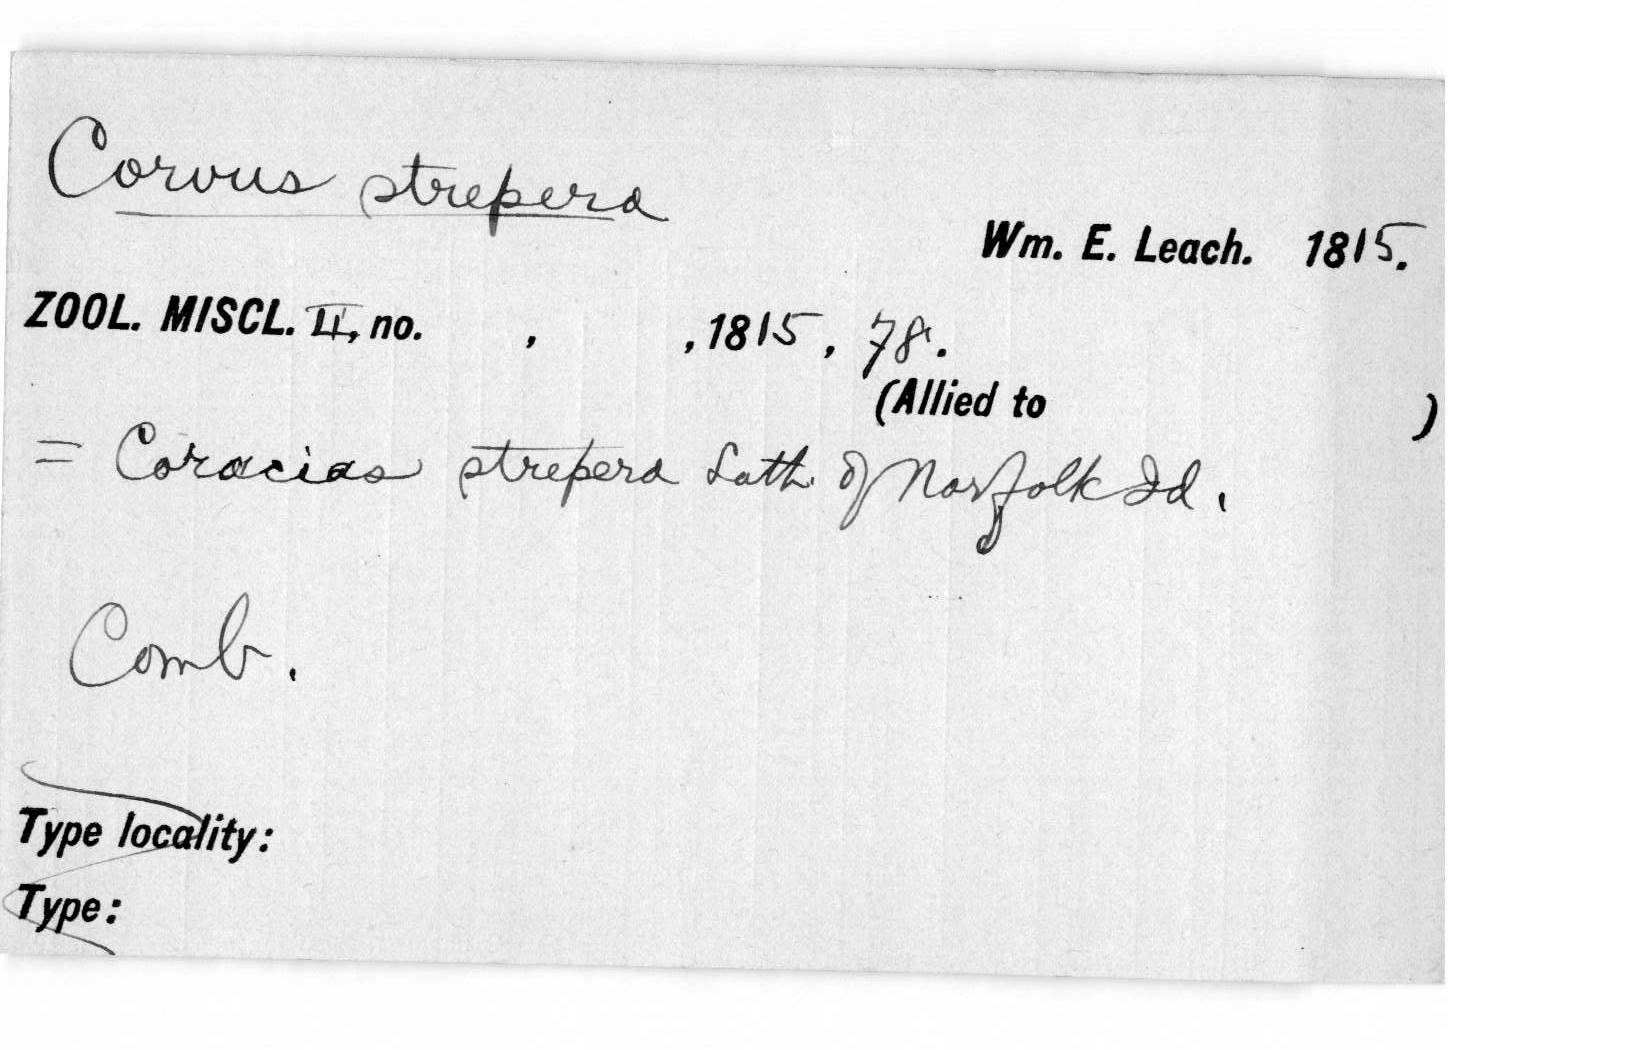 Corvus strepera
Wm. E. Leach. 1815.
ZOOL. MISCL. II, no. , , 1815, 78.
(Allied to )
= Coracias strepera Lath. of Norfolk Id.
Comb.
Type locality:
Type: